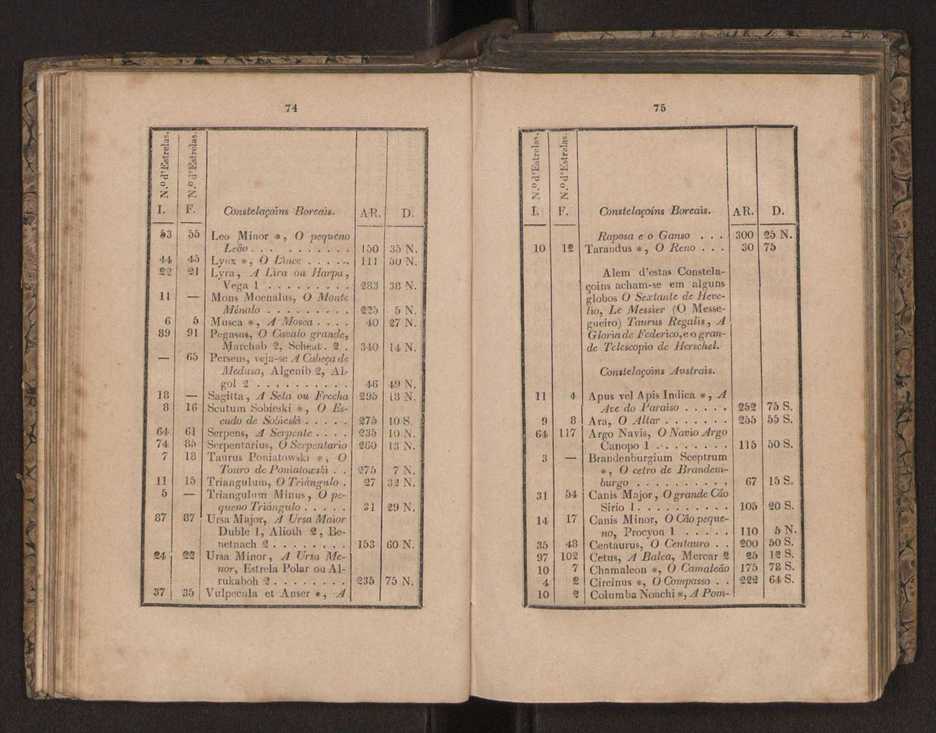 74
N.º d'Estrelas. N.º d'Estrelas.
I. F. Constelaçoins Boreais. AR. D.
53 55 Leo Minor *, O pequeno
Leão . . . . . . . . . . 150 35 N.
44 45 Lynx *, O Lince . . . . . 111 50 N.
22 21 Lyra, A Lira ou Harpa,
Vega 1 . . . . . . . . . 283 38 N.
11 — Mons Moenalus, O Monte
Ménalo . . . . . . . . . 225 5 N.
6 5 Musca *, A Mosca . . . . 40 27 N.
89 91 Pegasus, O Cavalo grande,
Marchab 2, Scheat. 2 . 340 14 N.
— 65 Perseus, veja-se A Cabeça de
Medusa, Algenib 2, Al-
gol 2 . . . . . . . . . . 46 49 N.
18 — Sagitta, A Seta ou Frecha 295 18 N.
8 16 Scutum Sobieski *, O Es-
cudo de Sobieski . . . . . 275 10 S.
64 61 Serpens, A Serpente . . . . 235 10 N.
74 85 Serpentarius, O Serpentario 260 13 N.
7 18 Taurus Poniatowski *, O
Touro de Poniatowski . . 275 7 N.
11 15 Triangulum, O Triángulo . 27 32 N.
5 — Triangulum Minus, O pe-
queno Triángulo . . . . . 31 29 N.
87 87 Ursa Major, A Ursa Maior
Duble 1, Alioth 2, Be-
netnach 2 . . . . . . . . 153 60 N.
24 22 Ursa Minor, A Ursa Me-
nor, Estrela Polar ou Al-
rukaboh 2 . . . . . . . . 235 75 N.
37 35 Vulpecula et Anser *, A
75
N.º d'Estrelas. N.º d'Estrelas.
I. F. Constelaçoins Boreais. AR. D.
Raposa e o Ganso . . . 300 25 N.
10 12 Tarandus *, O Reno . . . 30 75
Alem d'estas Constela-
çoins acham-se em alguns
globos O Sextante de Heve-
lio, Le Messier (O Messe-
gueiro) Taurus Regalis, A
Gloria de Federico, e o gran-
de Telescopio de Herschel.
Constelaçoins Austrais.
11 4 Apus vel Apis Indica *, A
Ave do Paraiso . . . . . 252 75 S.
9 8 Ara, O Altar . . . . . . . 255 55 S.
64 117 Argo Navis, O Navio Argo
Canopo 1 . . . . . . . . 115 50 S.
3 — Brandenburgium Sceptrum
*, O cetro de Brandem-
burgo . . . . . . . . . . 67 15 S.
31 54 Canis Major, O grande Cão
Sirio 1 . . . . . . . . . . 105 20 S.
14 17 Canis Minor, O Cão peque-
no, Procyon 1 . . . . . 110 5 N.
35 48 Centaurus, O Centauro . . 200 50 S.
97 102 Cetus, A Balea, Mercar 2 25 12 S.
10 7 Chamaleon *, O Camaleão 175 78 S.
4 2 Circinus *, O Compasso . . 222 64 S.
10 2 Columba Noachi *, A Pom-